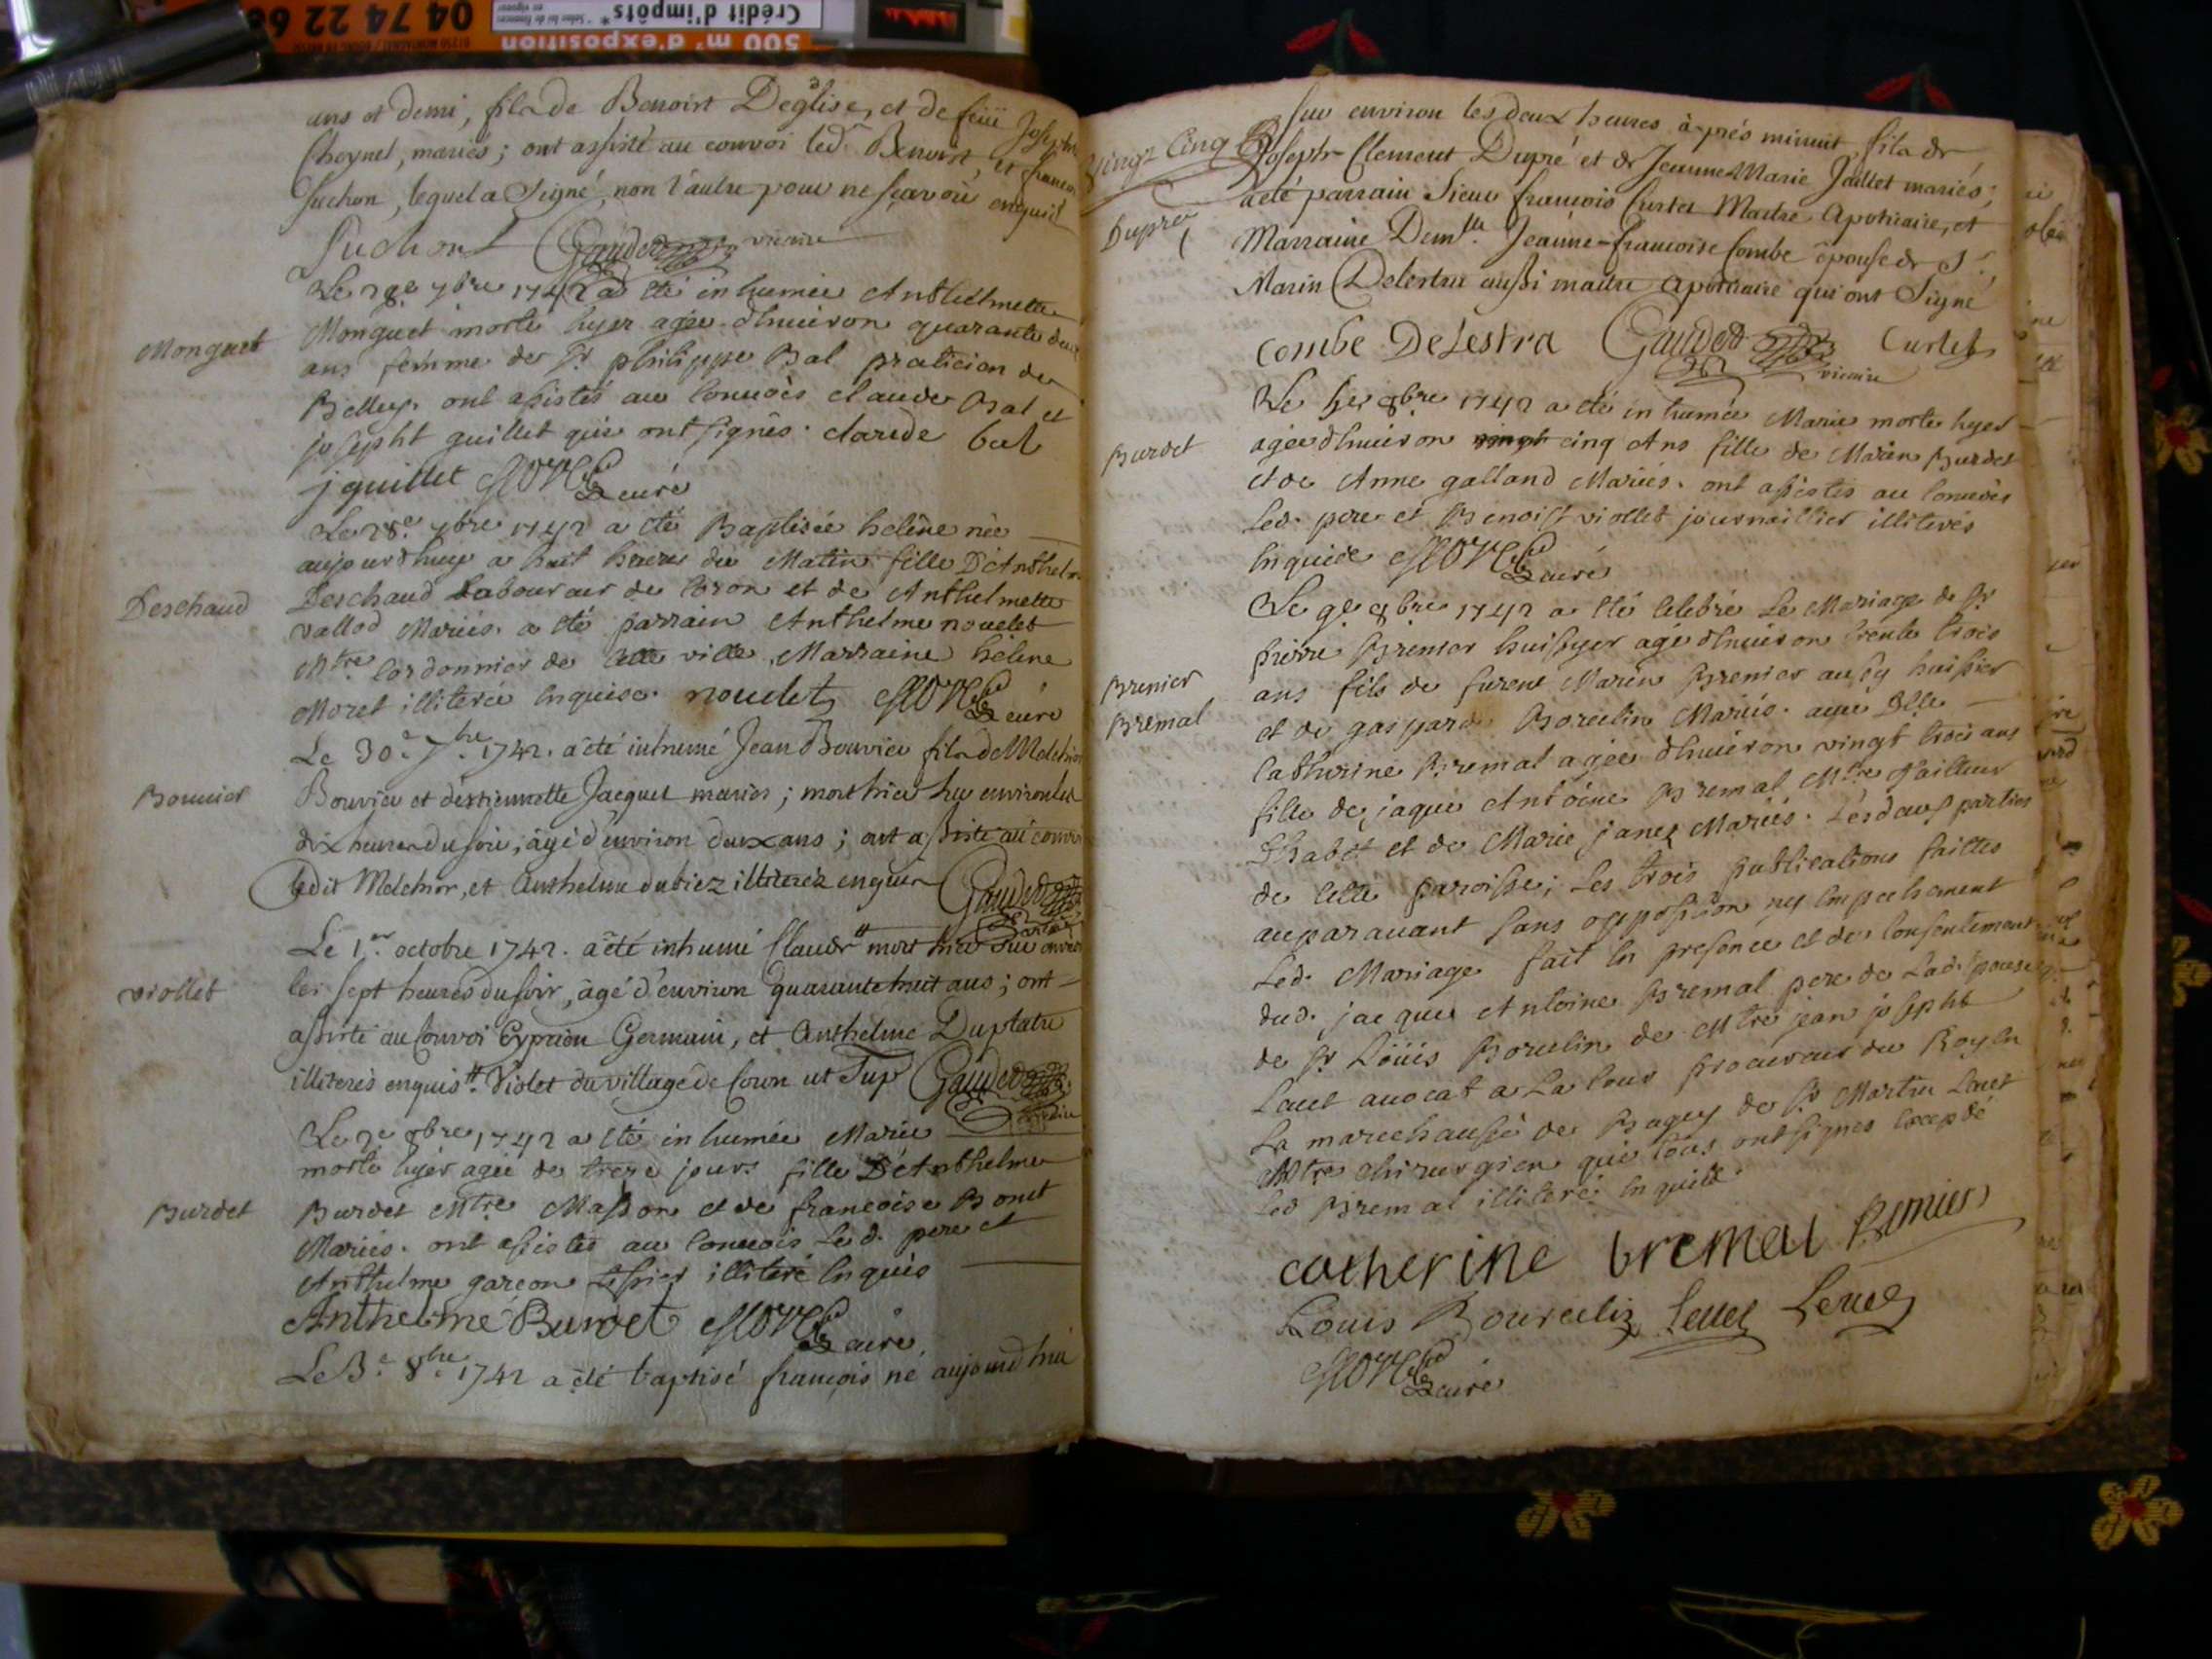 04 74 22 6
01250 MONTAGNAT / BOURG EN BRESSE
500 m² d'exposition
Crédit d'impôts*
* Selon loi de finances en vigueur
ans et demi, fils de Benoist Deglise, et de feüe Josephte
Cheynel, mariés; ont assisté au convoi led. Benoist, et francois
Suchon, lequel a signé, non l'autre pour ne sçavoir enquis
Suchon Gaudet vicaire
Monguet
Le 7bre 1742 a été inhumée Anthelmette
Monguet morte hyer agée d'huiron quarante deux
ans femme de Sr philippe Bal praticien de
Belley. ont assistés au conuois claude Bal et
josepht guillet qui ont signés. claude bal
j guillet curé
Le 28e 7bre 1742 a été Baptisée heléne née
aujourdhuy a huit heures du Matin fille D'Anthelme
Deschaud
Deschaud Labourour de Coron et de Anthelmette
vallod Mariés. a été parrain Anthelme nouelet
Mtre Cordonnier de Cette ville Marraine héléne
Moret illiterée Enquise. nouelet curé
Le 30e 7bre 1742. a été inhumé Jean Bouvier fils de Melchior
Bouuier
Bouvier et d'estiennette Jacquet mariés; mort hier sur environ les
dix heures du soir, âgé d'environ deux ans; ont assisté au convoi
ledit Melchior, et Anthelme dubiez illiterés enquis Gaudet
Le 1er octobre 1742. a été inhumé Claude # mort hier sur environ
viollet
les sept heures du soir, âgé d'environ quarante huit ans; ont
assisté au Convoi Cyprien Germain, et Anthelme Duplatre
illiterés enquis #. Violet du village de Coron ut sup Gaudet
Le 2e 8bre 1742 a été inhumée Marie
morte hyer agée de treze jours fille D'Anthelme
Burdet
Burdet Mtre Masson et de francoise Bonet
Mariés. ont assistés au Conuois Led. pere et
Anthelme garcon illiteré Enquis
Anthelme Burdet curé
Le 3e 8bre 1742 a été baptisé françois né aujourd'hui
Vingt Cinq
sur environ les deux heures après minuit, fils de
Joseph-Clement Dupré et de Jeanne Marie Jaillet mariés;
Dupré
a été parrain Sieur françois Curtet Maitre Apoticaire, et
Marraine Demlle. Jeanne-francoise Combe épouse de Sr.
Marin Delestra aussi maitre apoticaire qui ont signé
combe DeLestra Gaudet vicaire Curtet
Le 8bre 1742 a été inhumée Marie morte hyer
Burdet
agée dhuiron vingt cinq Ans fille de Marin Burdet
et de Anne galland Mariés. ont assistés au Conuois
Led. pere et Benoist viollet journaillier illiterés
Enquis curé
Le 9e 8bre 1742 a été Celebré Le Mariage de Sr
pierre Brenier huissyer agé dhuiron trente trois
Brenier
ans fils de furent Marin Brenier aussy huissier
Bremal
et de gasparde Borcelin Mariés. auec Dlle
Catherine Bremal agée dhuiron vingt trois ans
fille de jaque Antoine Bremal Mtre Tailleur
D'habit et de Marie janez Mariés. Lesd parties
de Cette paroisse; Les trois publications faittes
auparauant sans opposition ny Empechement
Led. Mariage fait En presence et du Consentement
dud. jacques Antoine Bremal pere de Lad. Epouse
de Sr Loüis Borcelin de Mtre jean josepht
Leuet auocat a La Cour procureur du Roy En
La marechaussé de Bugey de Sr Martin Leuet
Mtre chirurgien qui tous ont signes Excepté
Led Bremal illiteré Enquis
catherine bremal Brenier
Louis Bourcelin Leuet Leuet
curé